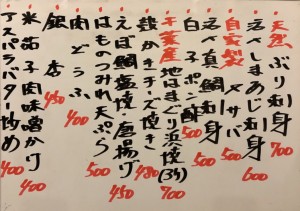 天然ぶり刺身 700
活〆しまあじ刺身 600
自家製〆サバ 500
活〆真鯛刺身 500
白子ポン酢 500
千葉産地はまぐり浜焼(3ヶ) 700
殻かきチーズ焼き 480
えぼ鯛塩焼・唐揚げ 450
はものつみれ天ぷら 500
肉どうふ 400
銀杏 450
米茄子肉味噌かけ 400
アスパラバター炒め 400